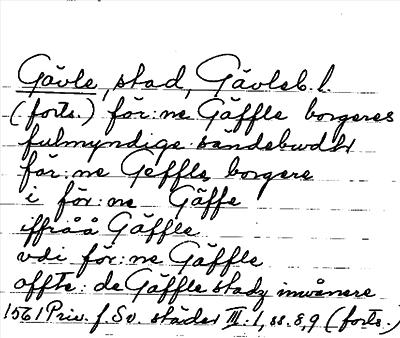 Gävle, stad, Gävleb. l.
(forts.) för:ne Gäffle borgeres
fulmyndige sändebudh
för:ne Geffle borgere
i för:ne Gäffe
iffråå Gäffle
vdi för:ne Gäffle
offte: de Gäffle stadz inwånere
1561 Priv. f. Sv. städer III: 1, ss. 8, 9 (forts.)